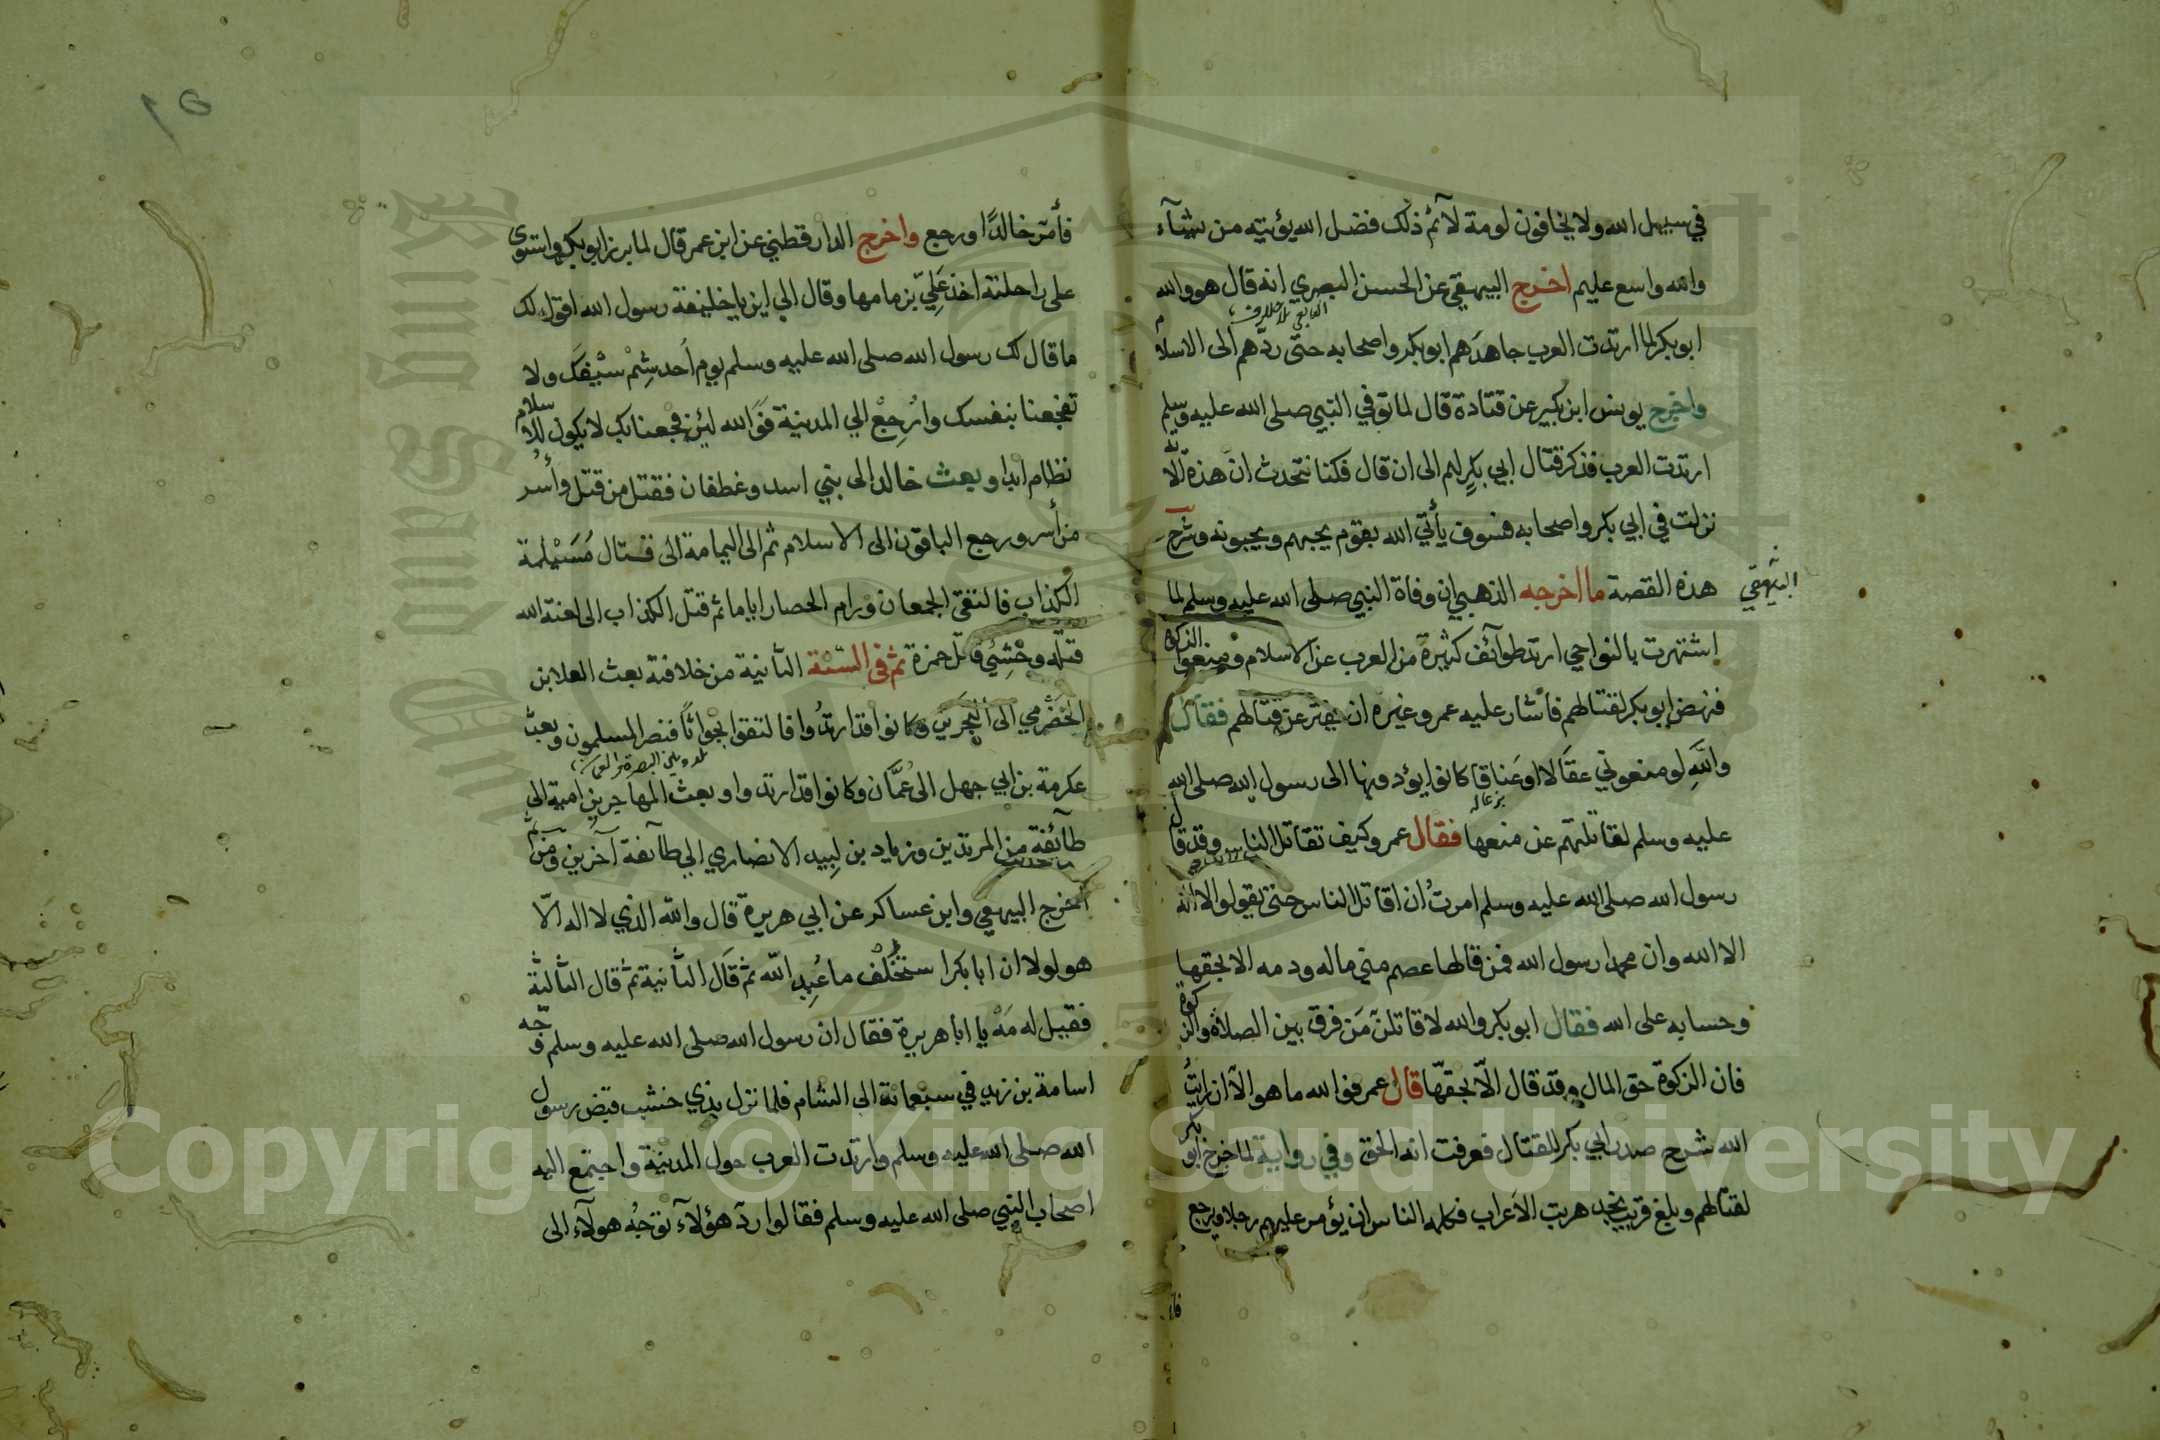 في سبيل الله ولا يخافون لومة لآئم ذلك فضل الله يؤتيه من يشآء
والله واسع عليم اخرج البيهقي عن الحسن البصري انه قال هو والله
ابو بكر لما ارتدت العرب جاهدهم ابو بكر واصحابه حتى ردهم الى الاسلام
واخرج يونس ابن بكير عن قتادة قال لما توفي النبي صلى الله عليه وسلم
ارتدت العرب فذكر قتال ابي بكر لهم الى ان قال فكنا نتحدث ان هذه الآية
نزلت في ابي بكر واصحابه فسوف يأتي الله بقوم يحبهم ويحبونه وشرح
هذه القصة ما اخرجه الذهبي ان وفاة النبي صلى الله عليه وسلم لما
البيهقي
اشتهرت بالنواحي ارتد طوآئف كثيرة من العرب عن الاسلام ومنعوا الزكوة
فنهض ابو بكر لقتالهم فأشار عليه عمر وغيره ان يفتر عن قتالهم فقال
والله لو منعوني عقالا او عناقا كانوا يؤدونها الى رسول الله صلى الله
عليه وسلم لقاتلتهم عن منعها فقال عمر وكيف تقاتل الناس وقد قال
رسول الله صلى الله عليه وسلم امرت ان اقاتل الناس حتى يقولوا لا اله
الا الله وان محمدا رسول الله فمن قالها عصم مني ماله ودمه الا بحقها
وحسابه على الله فقال ابو بكر والله لاقاتلن من فرق بين الصلاة والزكوة
فان الزكوة حق المال وقد قال الا بحقها قال عمر فوالله ما هو الا ان رايت
الله شرح صدر ابي بكر للقتال فعرفت انه الحق وفي رواية لما خرج ابو بكر
لقتالهم وبلغ قريب نجد هربت الاعراب فكلمه الناس ان يؤمر عليهم رجلا ويرجع
فأمر خالدا ورجع واخرج الدارقطني عن ابن عمر قال لما برز ابو بكر واستوى
على راحلته اخذ علي بزمامها وقال الي اين يا خليفة رسول الله اقول لك
ما قال لك رسول الله صلى الله عليه وسلم يوم احد شم سيفك ولا
تفجعنا بنفسك وارجع الي المدينة فوالله لئن فجعنا بك لا يكون للاسلام
نظام ابدا وبعث خالد الى بني اسد وغطفان فقتل من قتل وأسر
من أسر ورجع الباقون الى الاسلام ثم الى اليمامة الى قتال مسيلمة
الكذاب فالتقى الجمعان ورام الحصار اياما ثم قتل الكذاب الى لعنة الله
قتله وحشي قاتل حمزة ثم في السنة الثانية من خلافته بعث العلا بن
الحضرمي الى البحرين وكانوا قد ارتدوا فالتقوا بجواثا فنصر المسلمون وبعث
عكرمة بن ابي جهل الى عمان وكانوا قد ارتدوا وبعث المهاجر بن امية الى
طآئفة من المرتدين وزياد بن لبيد الانصاري الي طآئفة آخرين ومن ثم
اخرج البيهقي وابن عساكر عن ابي هريرة قال والله الذي لا اله الا
هو لولا ان ابا بكر استخلف ما عبد الله ثم قال الثانية ثم قال الثالثة
فقيل له مه يا ابا هريرة فقال ان رسول الله صلى الله عليه وسلم وجه
اسامة بن زيد في سبعمائة الى الشام فلما نزل بذي خشب قبض رسول
الله صلى الله عليه وسلم وارتدت العرب حول المدينة واجتمع اليه
اصحاب النبي صلى الله عليه وسلم فقالوا رد هؤلآء توجه هولآء الى
Copyright © King Saud University